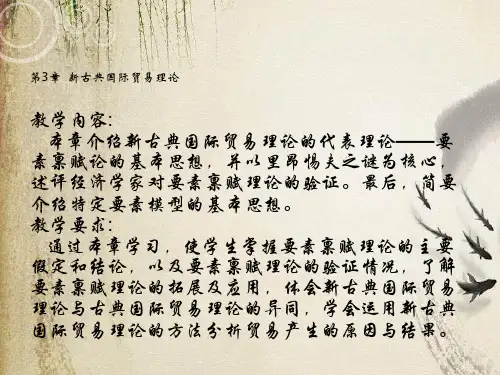 第3章 新古典国际贸易理论
教学内容:
本章介绍新古典国际贸易理论的代表理论——要
素禀赋论的基本思想，并以里昂惕夫之谜为核心，
述评经济学家对要素禀赋理论的验证。最后，简要
介绍特定要素模型的基本思想。
教学要求:
通过本章学习，使学生掌握要素禀赋理论的主要
假定和结论，以及要素禀赋理论的验证情况，了解
要素禀赋理论的拓展及应用，体会新古典国际贸易
理论与古典国际贸易理论的异同，学会运用新古典
国际贸易理论的方法分析贸易产生的原因与结果。